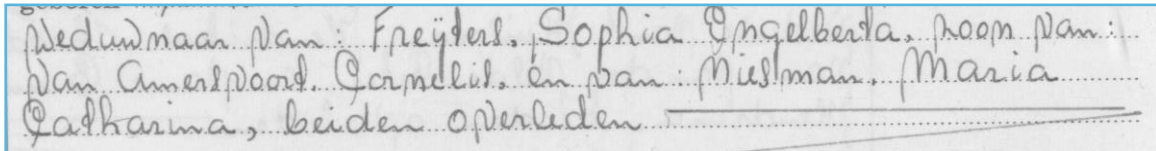 Weduwnaar van: Freijters, Sophia Engelberta, zoon van:
van Amersvoort, Cornelis, en van: Nielman, Maria
Catharina, beiden overleden